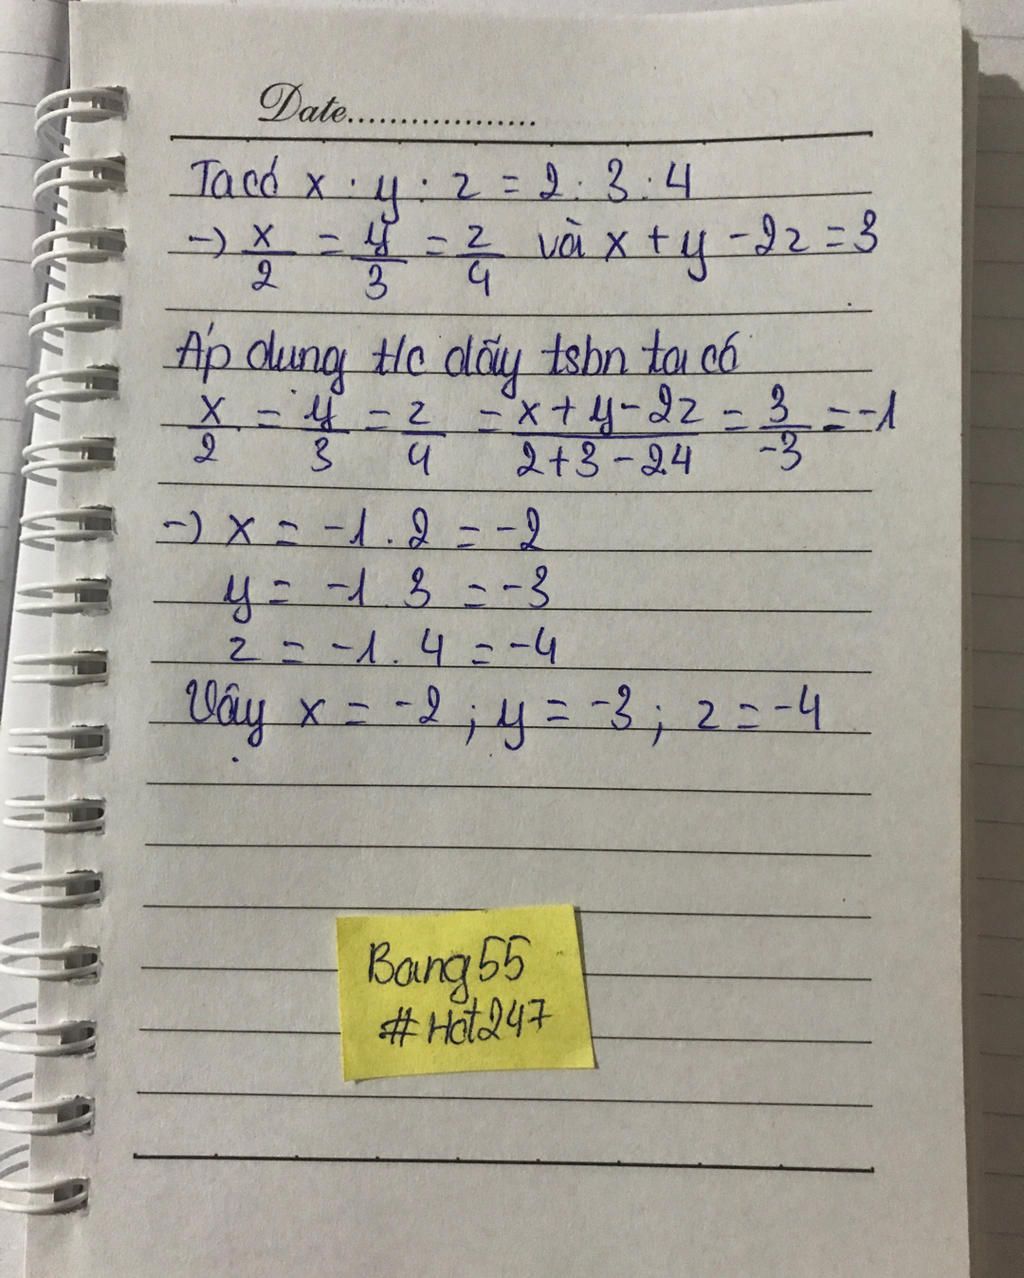 Date..................
Ta có x : y : z = 2 : 3 : 4
→ x/2 = y/3 = z/4 và x + y - 2z = 3
Áp dung t/c dãy tsbn ta có
x/2 = y/3 = z/4 = x + y - 2z/2 + 3 - 2.4 = 3/-3 = -1
→ x = -1 . 2 = -2
y = -1 . 3 = -3
z = -1 . 4 = -4
Vậy x = -2 ; y = -3 ; z = -4
Bang55
#Hot247